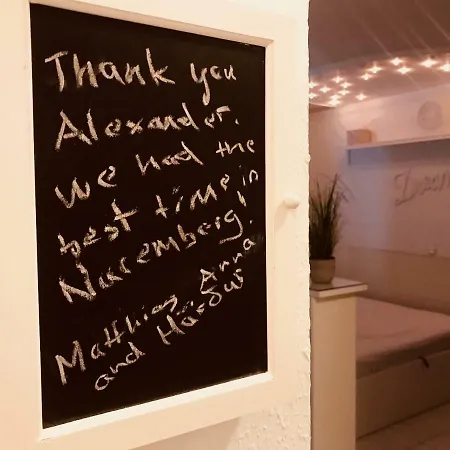 Thank you
Alexander.
We had the
best time in
Nuremberg!
Matthias, Anna
and Hardus
Dream